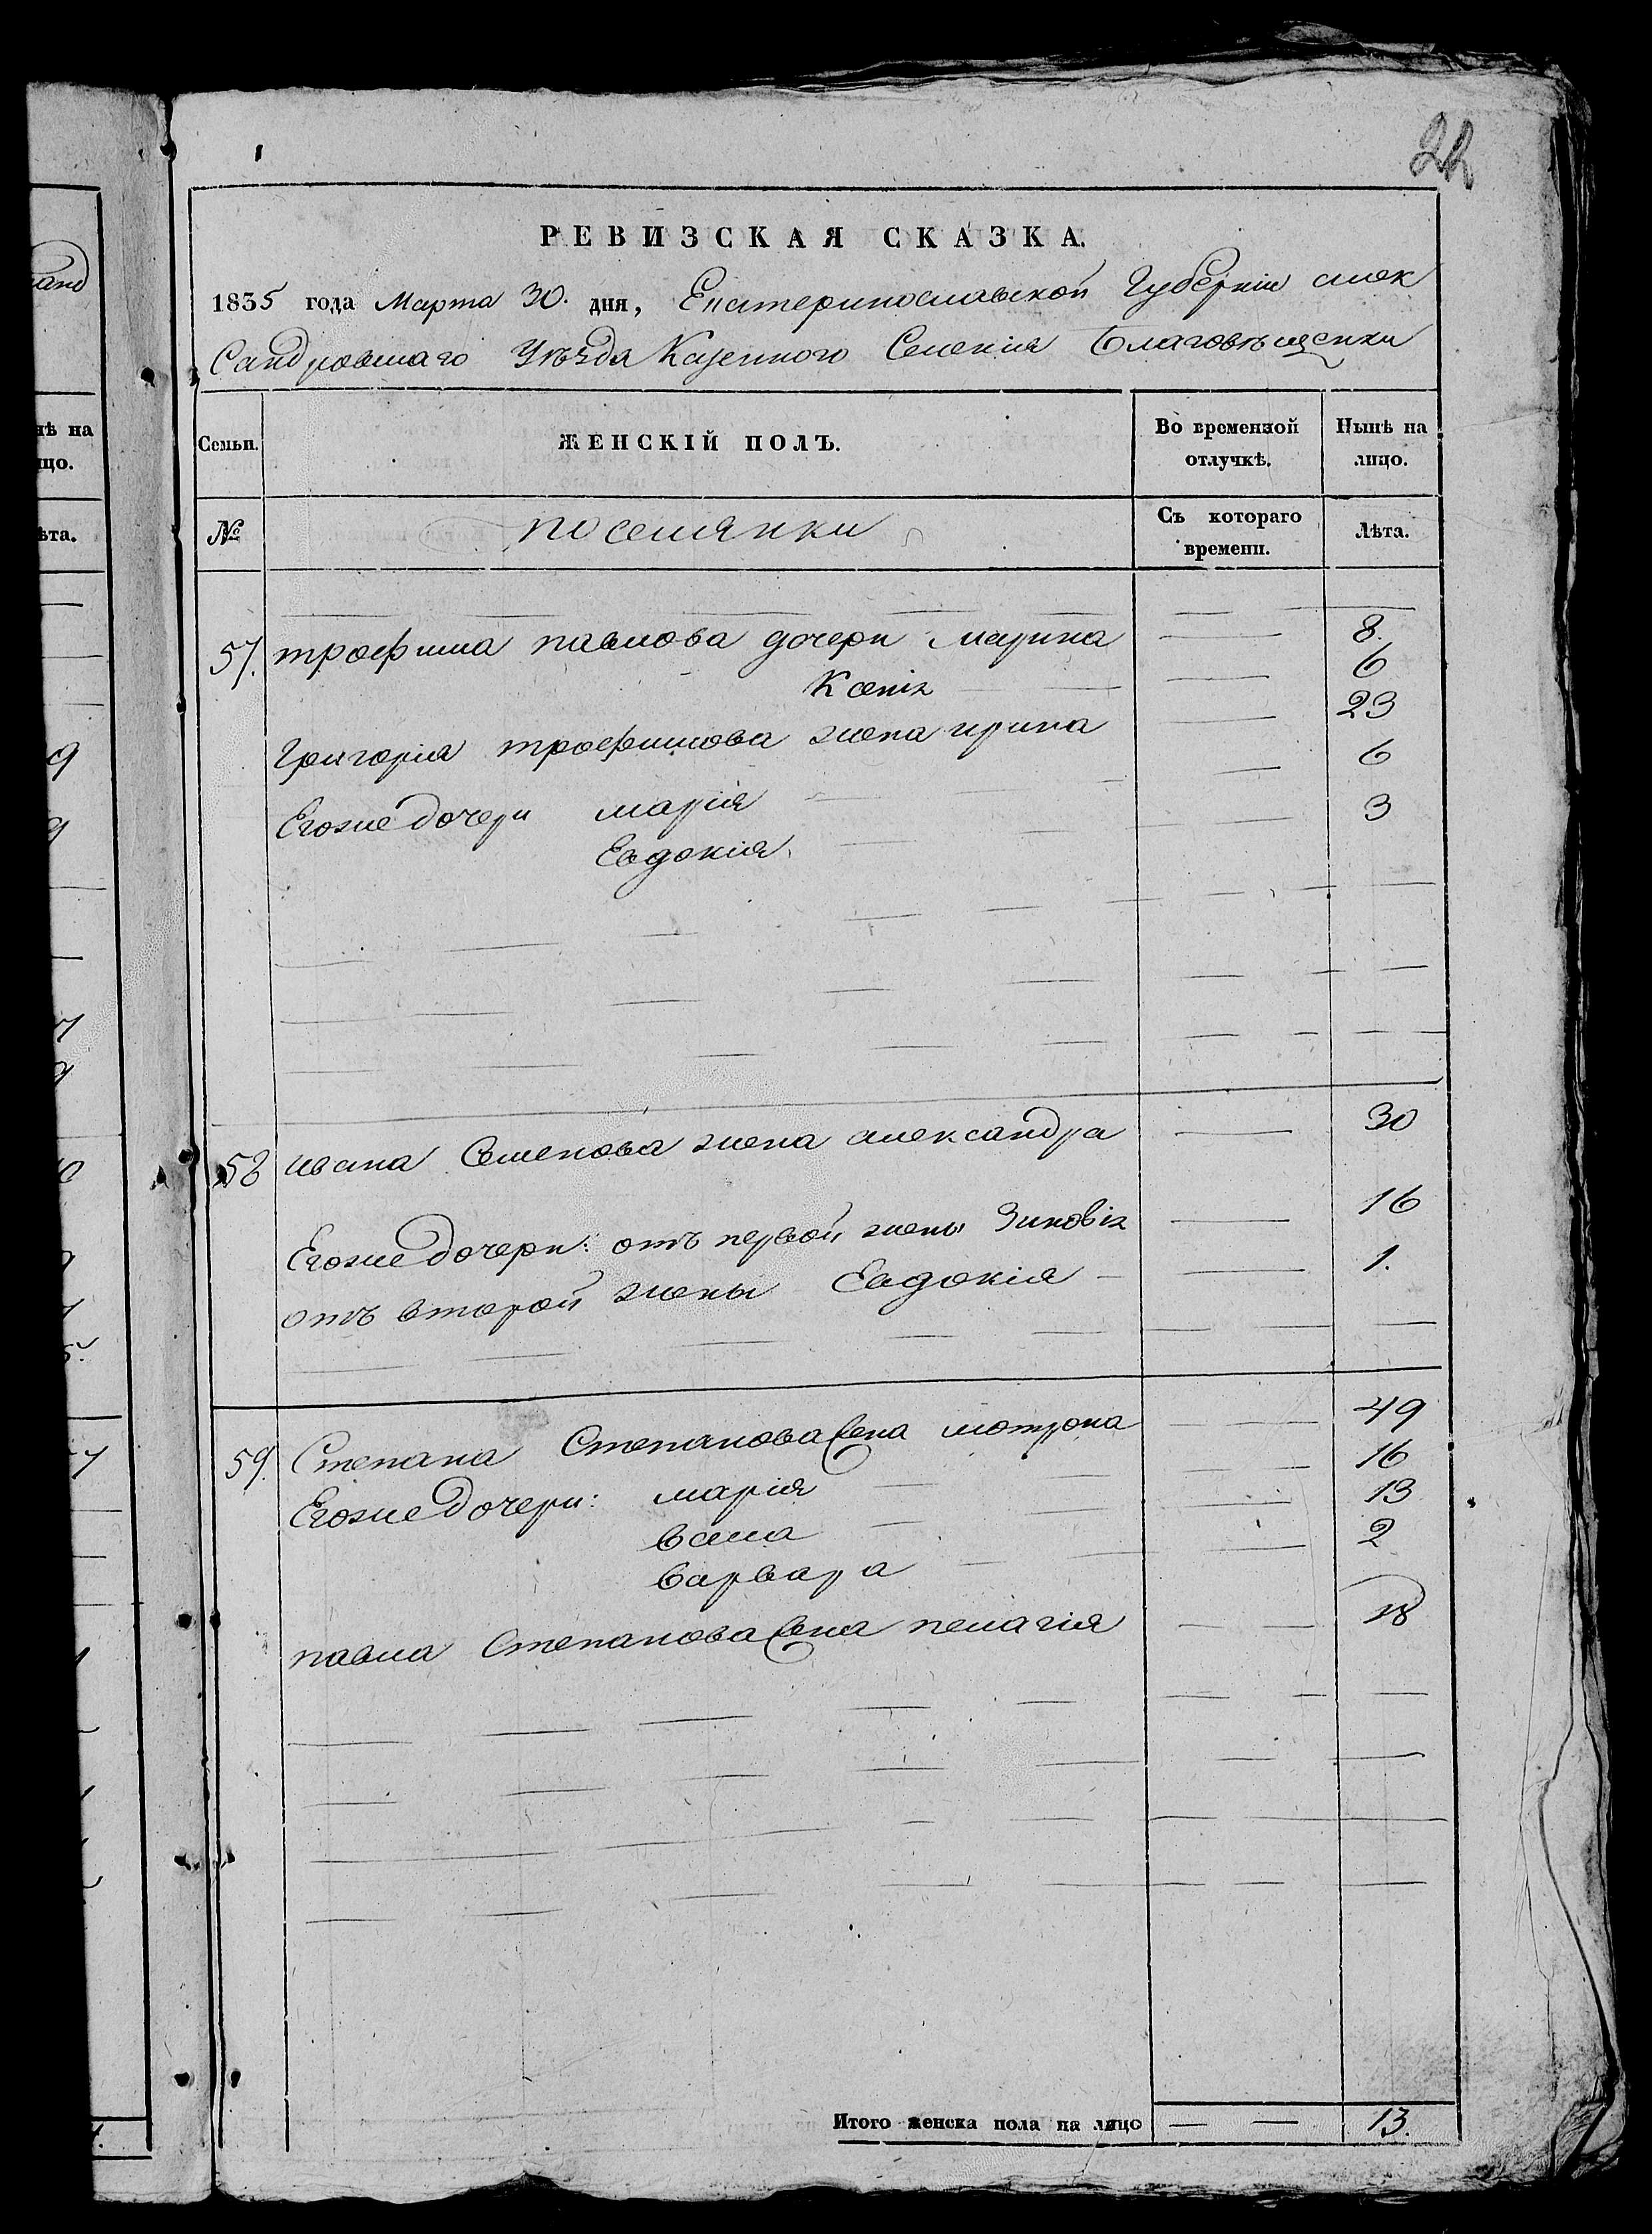 22
РЕВИЗСКАЯ СКАЗКА.
1835 года Марта 30. дня, Екатеринославской Губерніи алек
Сандровшаго Уѣзда Казенного Селенія Благовѣщенки
Семьи. ЖЕНСКІЙ ПОЛЪ. Во временной отлучкѣ. Нынѣ на лицо.
№ поселянки Съ котораго времени. Лѣта.
57. трофима павлова дочери Марина 8.
Ксенія 6
Григорія трофимова жена ирина 23
Егоже дочери марія 6
Евдокія 3
58 ивана Семенова жена александра 30
Егоже дочери: отъ первой жены Зиновія 16
отъ второй жены Евдокія 1.
59. Степана Степанова жена мотрона 49
Егоже дочери: марія 16
васса 13
варвара 2
павла Степанова жена пелагія 18
Итого женска пола на лицо 13.